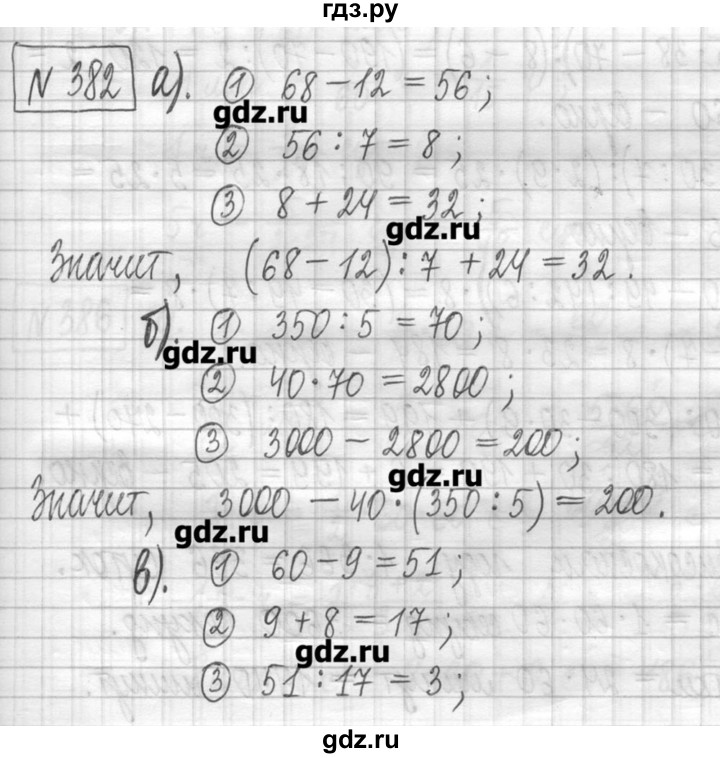 гдз.ру
N 382 а). ① 68 – 12 = 56 ;
gdz.ru
② 56 : 7 = 8 ;
③ 8 + 24 = 32 ;
gdz.ru
Значит, (68 – 12) : 7 + 24 = 32 .
б). ① 350 : 5 = 70 ;
gdz.ru
② 40 · 70 = 2800 ;
③ 3000 – 2800 = 200 ;
gdz.ru
Значит, 3000 – 40 · (350 : 5) = 200 .
gdz.ru
в). ① 60 – 9 = 51 ;
② 9 + 8 = 17 ;
gdz.ru
③ 51 : 17 = 3 ;
gdz.ru